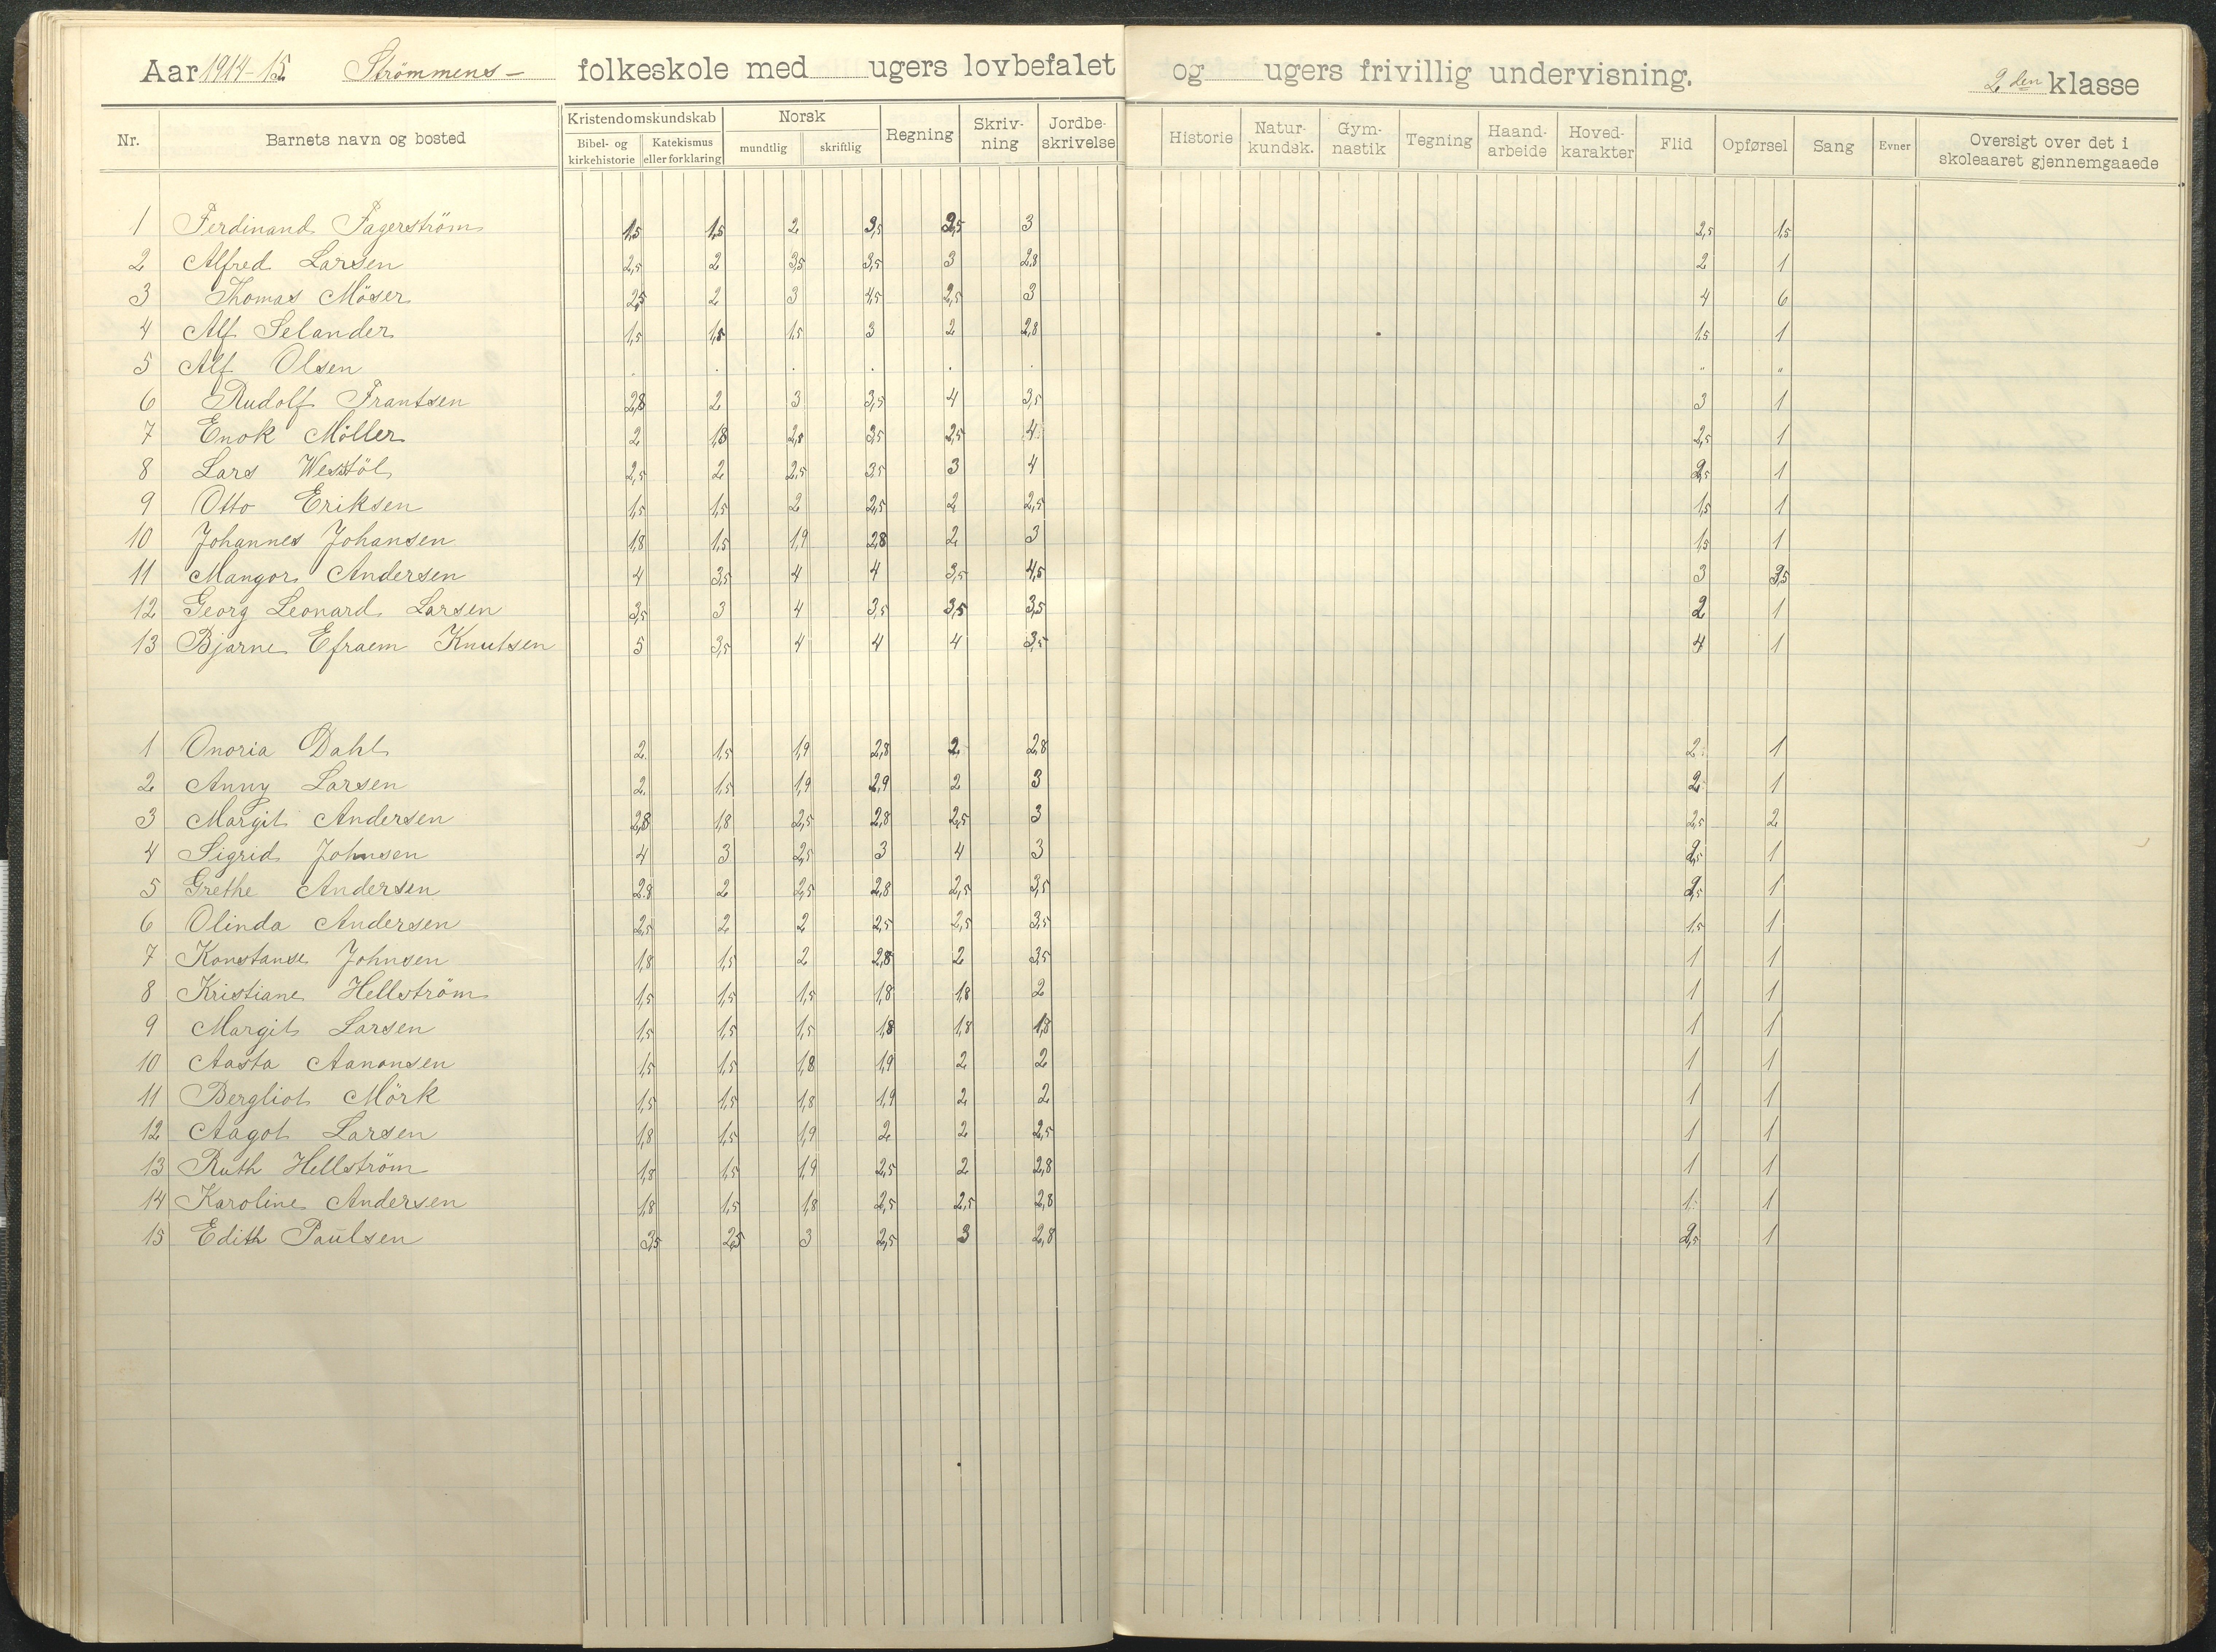 Aar 1914-15. Strömmens - folkeskole med ugers lovbefalet og ugers frivillig undervisning. 2.den klasse
Nr. Barnets navn og bosted Kristendomskundskab Bibel- og kirkehistorie Katekismus eller forklaring Norsk mundtlig skriftlig Regning Skriv-ning Jordbe-skrivelse Historie Natur-kundsk. Gym-nastik Tegning Haand-arbeide Hoved-karakter Flid Opførsel Sang Evner Oversigt over det i skoleaaret gjennemgaaede
1 Ferdinand Fagerström 1,5 1,5 2 3,5 2,5 3 2,5 1,5
2 Alfred Larsen 2,5 2 3,5 3,5 3 2,8 2 1
3 Thomas Möser 2,5 2 3 4,5 2,5 3 4 6
4 Alf Selander 1,5 1,5 1,5 3 2 2,8 1,5 1
5 Alf Olsen . . . . . . " "
6 Rudolf Frantsen 2,8 2 3 3,5 4 3,5 3 1
7 Enok Möller 2 1,8 2,5 3,5 2,5 4 2,5 1
8 Lars Westöl 2,5 2 2,5 3,5 3 4 2,5 1
9 Otto Eriksen 1,5 1,5 2 2,5 2 2,5 1,5 1
10 Johannes Johansen 1,8 1,5 1,9 2,8 2 3 1,5 1
11 Mangor Andersen 4 3,5 4 4 3,5 4,5 3 3,5
12 Georg Leonard Larsen 3,5 3 4 3,5 3,5 3,5 2 1
13 Bjarne Efraem Knutsen 5 3,5 4 4 4 3,5 4 1
1 Onoria Dahl 2 1,5 1,9 2,8 2 2,8 2 1
2 Anny Larsen 2 1,5 1,9 2,9 2 3 2 1
3 Margit Andersen 2,8 1,8 2,5 2,8 2,5 3 2,5 2
4 Sigrid Johnsen 4 3 2,5 3 4 3 2,5 1
5 Grethe Andersen 2,8 2 2,5 2,8 2,5 3,5 2,5 1
6 Olinda Andersen 2,5 2 2 2,5 2,5 3,5 1,5 1
7 Konstanse Johnsen 1,8 1,5 2 2,8 2 3,5 1 1
8 Kristiane Hellström 1,5 1,5 1,5 1,8 1,8 2 1 1
9 Margit Larsen 1,5 1,5 1,5 1,8 1,8 1,8 1 1
10 Aasta Aanonsen 1,5 1,5 1,8 1,9 2 2 1 1
11 Bergliot Mörk 1,5 1,5 1,8 1,9 2 2 1 1
12 Aagot Larsen 1,8 1,5 1,9 2 2 2,5 1 1
13 Ruth Hellström 1,8 1,5 1,9 2,5 2 2,8 1 1
14 Karoline Andersen 1,8 1,5 1,8 2,5 2,5 2,8 1 1
15 Edith Paulsen 3,5 2,5 3 2,5 3 2,8 2,5 1